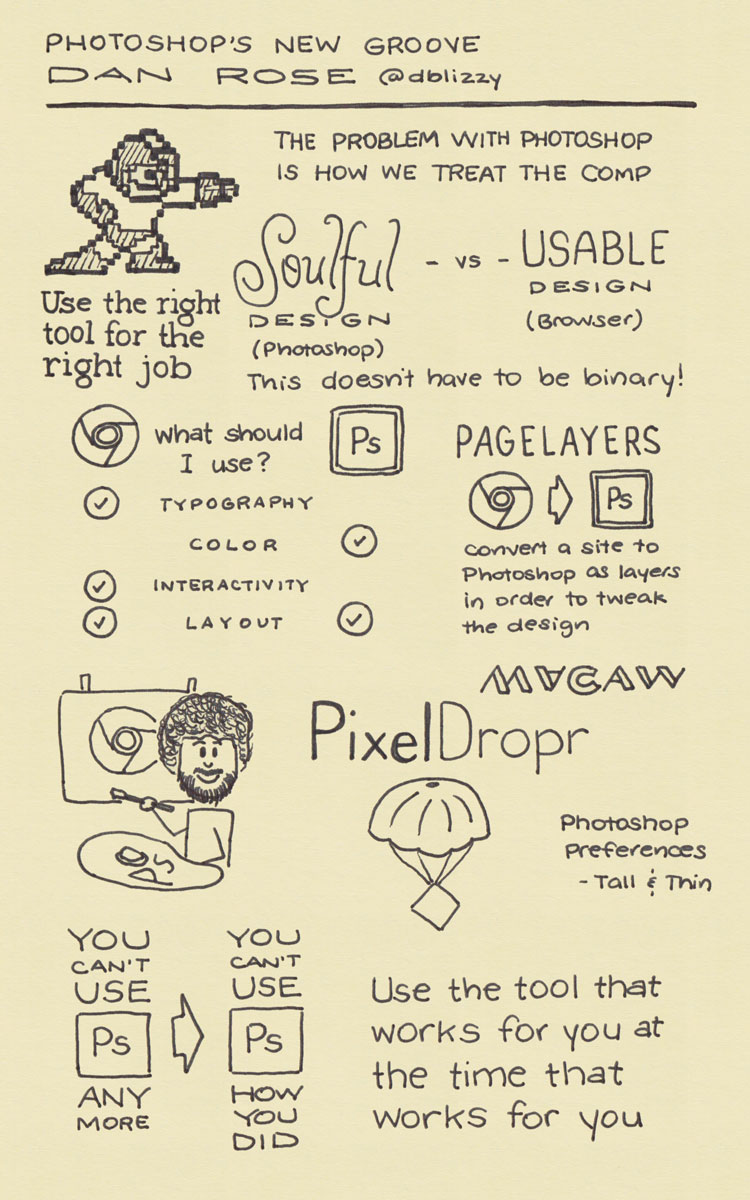 PHOTOSHOP'S NEW GROOVE
DAN ROSE @dblizzy
THE PROBLEM WITH PHOTOSHOP
IS HOW WE TREAT THE COMP
Use the right
tool for the
right job
Soulful
DESIGN
(Photoshop)
- vs -
USABLE
DESIGN
(Browser)
This doesn't have to be binary!
What should
I use?
Ps
TYPOGRAPHY
COLOR
INTERACTIVITY
LAYOUT
PAGELAYERS
Ps
convert a site to
Photoshop as layers
in order to tweak
the design
MACAW
PixelDropr
Ps
Photoshop
Preferences
- Tall & Thin
YOU
CAN'T
USE
Ps
ANY
MORE
YOU
CAN'T
USE
Ps
HOW
YOU
DID
Use the tool that
works for you at
the time that
works for you